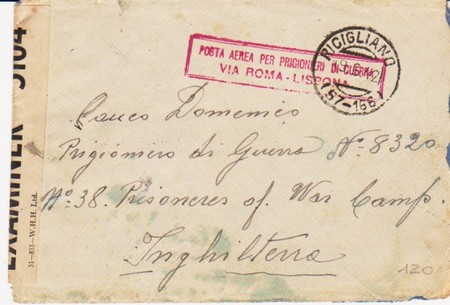 POSTA AEREA PER PRIGIONIERI DI GUERRA
VIA ROMA - LISBONA
RICIGLIANO
(57-166)
Cauco Domenico
Prigioniero di Guerra N° 8320
N° 38. Prisoneres of War Camp.
Inghilterra
120
EXAMINER 5104
51-851-W.H.H. Ltd.